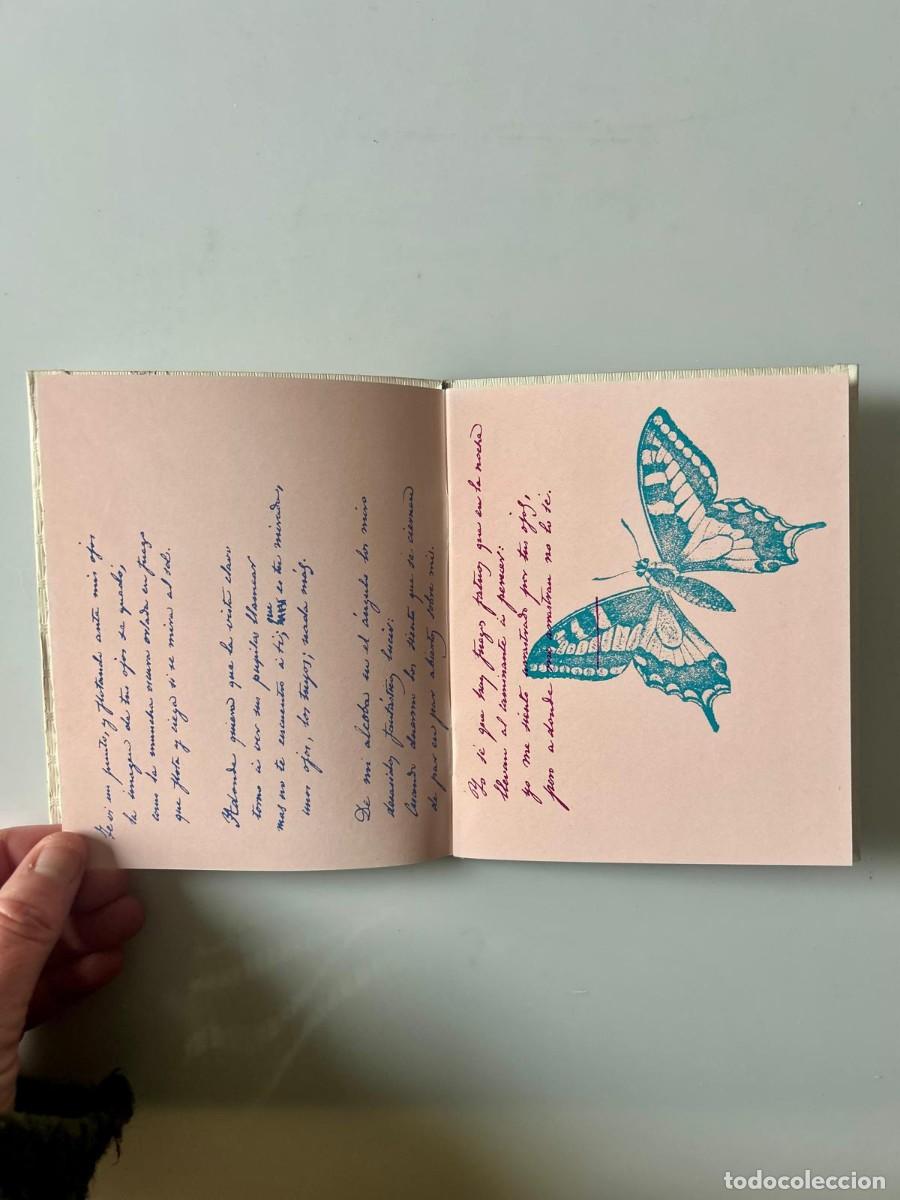 Te vi un punto, y, flotando ante mis ojos
la imagen de tus ojos se quedó,
como la mancha oscura orlada en fuego
que flota y ciega si se mira al sol.
Adonde quiera que la vista clavo
torno á ver sus pupilas llamear
mas no te encuentro á ti; que es tu mirada,
unos ojos, los tuyos, nada mas.
De mi alcoba en el ángulo los miro
desasidos fantásticos lucir:
Cuando duermo los siento que se ciernen
de par en par abiertos sobre mi.
Yo sé que hay fuegos fátuos que en la noche
llevan al caminante á perecer:
yo me siento arrastrado por tus ojos,
pero a donde me arrastran no lo sé.
todocoleccion